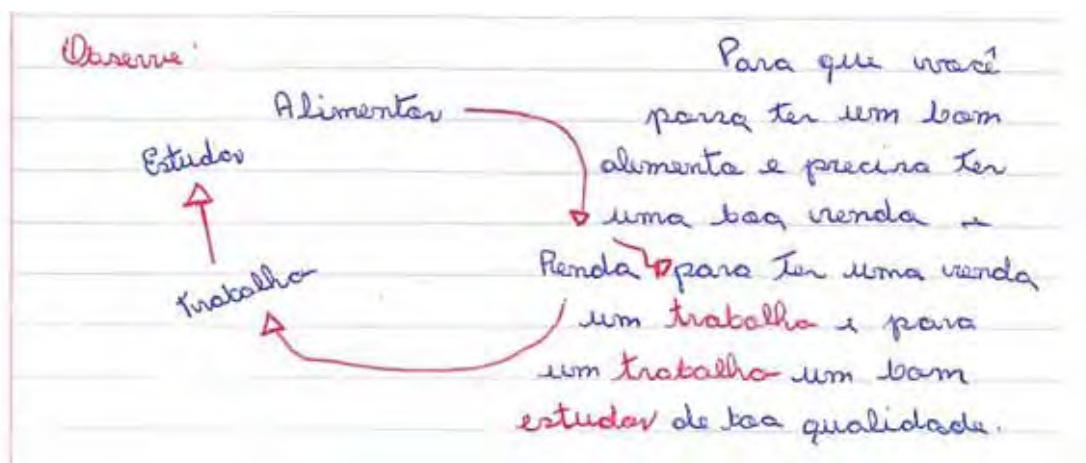 Observe:
Alimentar
Estudar
Trabalho
Renda
Para que você
possa ter um bom
alimento e precisa ter
uma boa renda e
para ter uma renda
um trabalho e para
um trabalho um bom
estudar de boa qualidade.